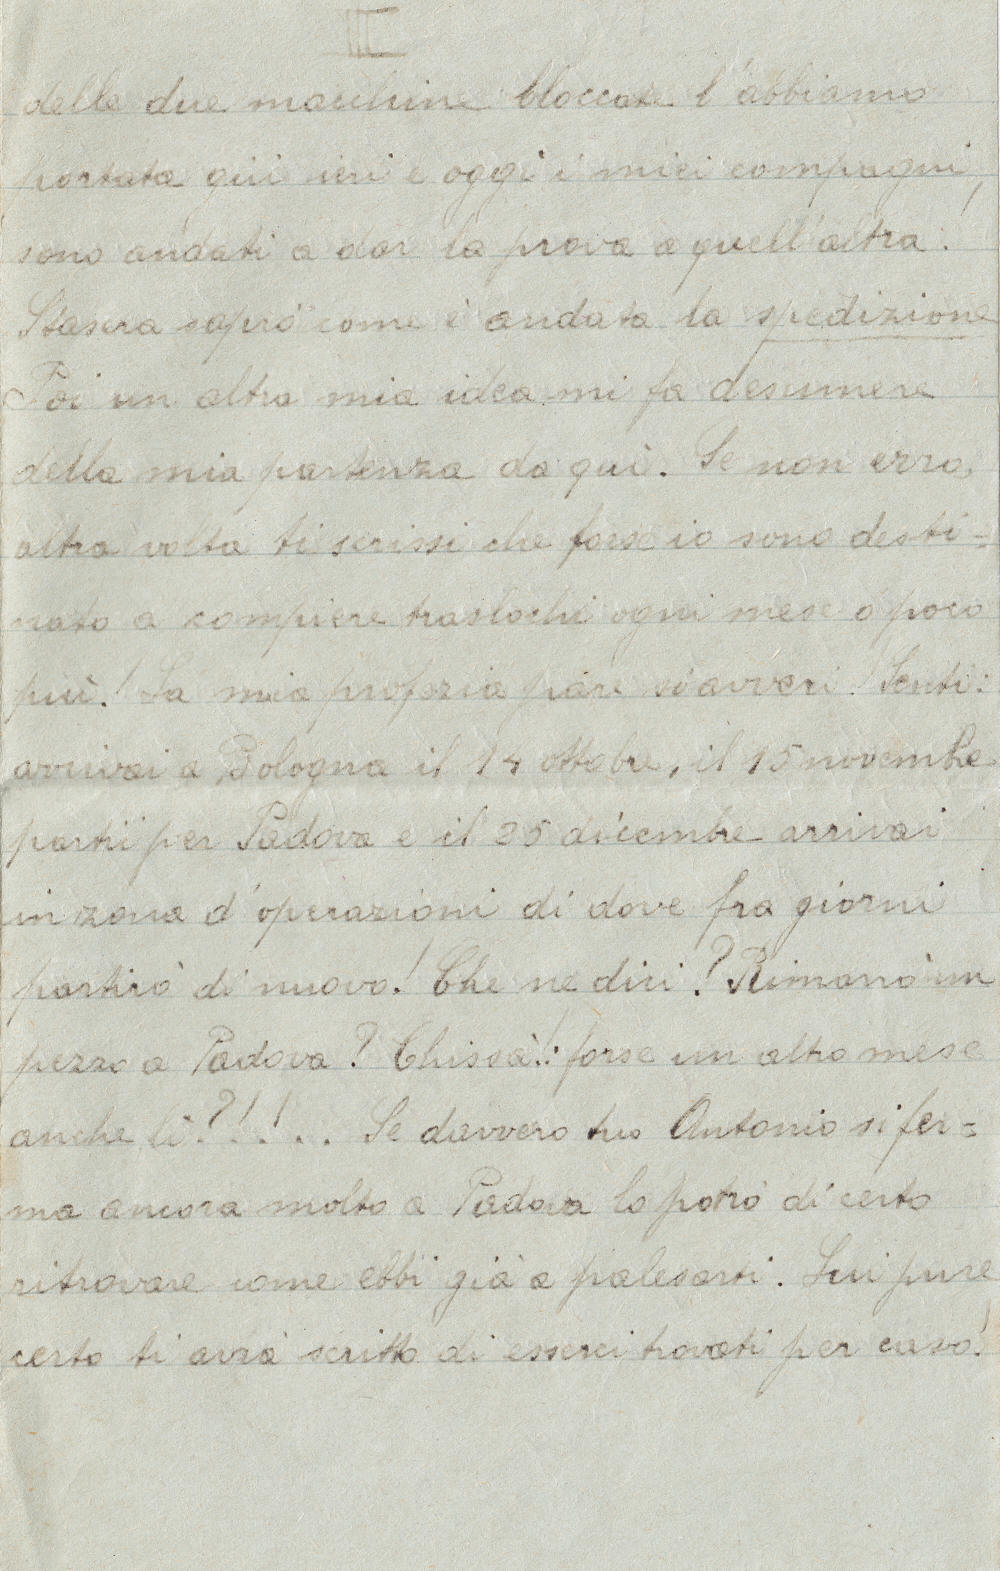 III
delle due macchine bloccate l'abbiamo
portata quì ieri e oggi i miei compagni,
sono andati a dar la prova a quell'altra.
Stasera saprò come è andata la spedizione
Poi un altra mia idea mi fa desumere
della mia partenza da quì. Se non erro,
altra volta ti scrissi che forse io sono desti=
nato a compiere traslochi ogni mese o poco
più! La mia profezia pare si avveri! Senti:
arrivai a Bologna il 14 ottobre, il 15 novembre
partii per Padova e il 25 dicembre arrivai
in zona d'operazioni di dove fra giorni
partirò di nuovo! Che ne dici? Rimarrò un
pezzo a Padova? Chissà!: forse un altro mese
anche lì?!!... Se davvero tuo Antonio si fer=
ma ancora molto a Padova lo potrò di certo
ritrovare come ebbi già a palesarti. Lui pure
certo ti avrà scritto di esserci trovati per caso!